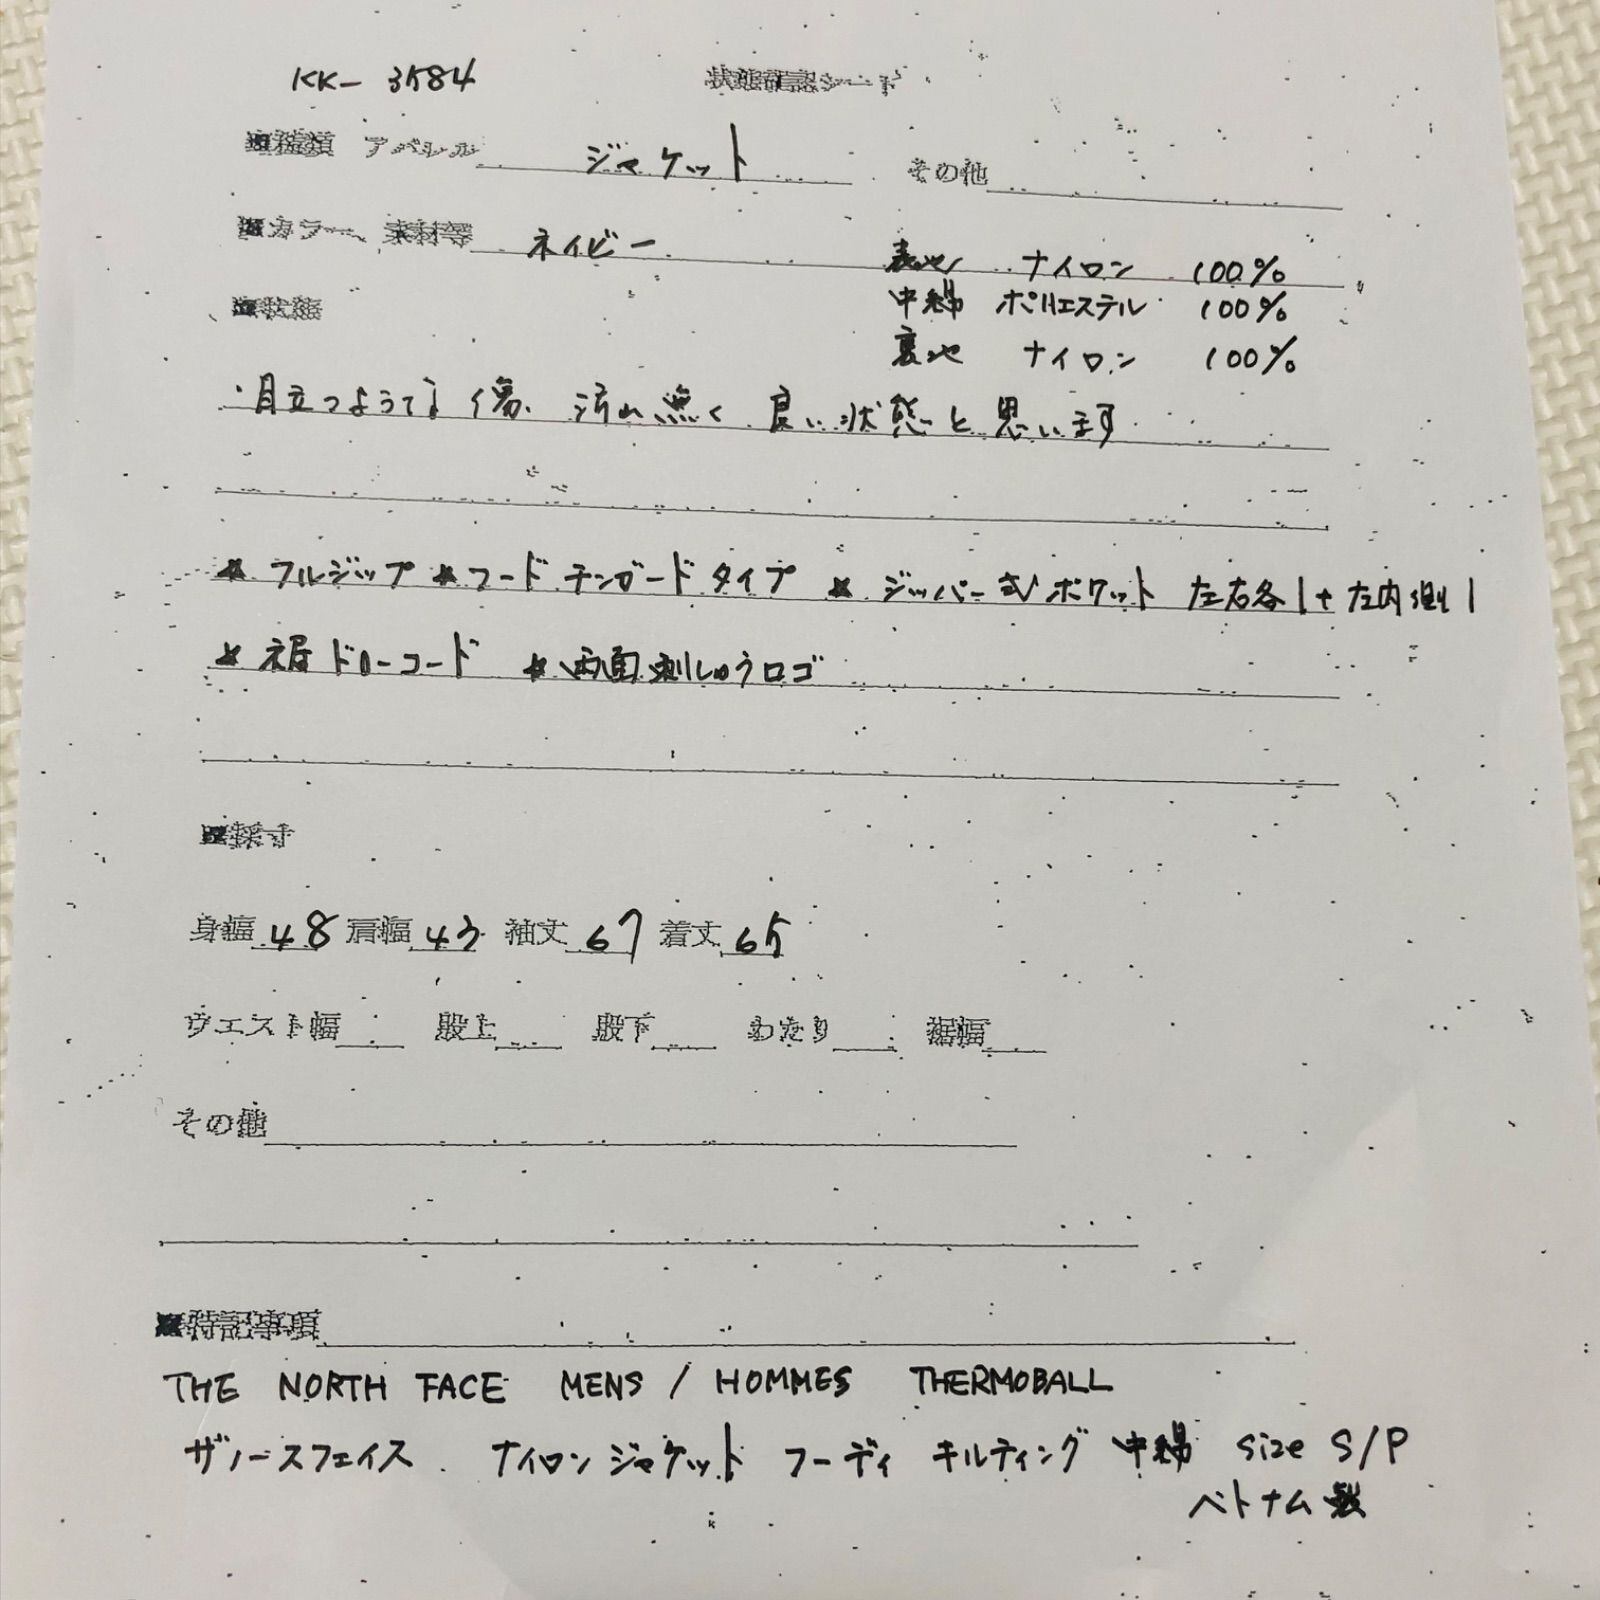 KK- 3584 状態確認シート
■種類 アパレル ジャケット その他
■カラー、素材等 ネイビー 表地 ナイロン 100%
中綿 ポリエステル 100%
■状態
裏地 ナイロン 100%
・目立つような傷、汚れ無く 良い状態と思います
★ フルジップ ★フード チンガードタイプ ★ ジッパー式ポケット 左右各1+左内側1
★ 裾ドローコード ★両面刺しゅうロゴ
■採寸
身幅 48 肩幅 43 袖丈 67 着丈 65
ウエスト幅 股上 股下 わたり 裾幅
その他
■特記事項
THE NORTH FACE MENS / HOMMES THERMOBALL
ザノースフェイス ナイロンジャケット フーディ キルティング 中綿 size S/P
ベトナム製